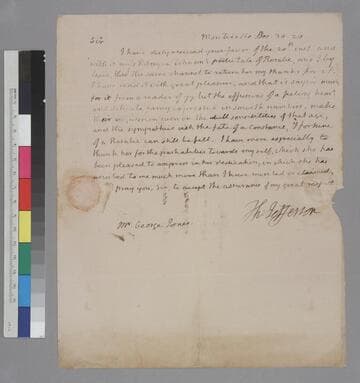 Monticello Dec. 30. 20
Sir
I have duly received your favor of the 20th inst. and
with it mrs Johnson's poetic tale of Rosalie, and I beg
leave, thro' the same channel to return her my thanks for it.
I have read it with great pleasure, and that is saying much
for it from a reader of 77. but the effusions of a feeling heart
and delicate fancy, expressed in smooth numbers, make
their impression even on the dull sensibilities of that age,
and the sympathies with the fate of a Constance, &
of a Rosalie can still be felt. I have more especially to
thank her for the partialities towards my self, which she has
been pleased to express in her dedication, in which she has
ascribed to me much more than I have merited or claimed,
I pray you, Sir, to accept the assurance of my great respect
Th: Jefferson
Mr. George Jones